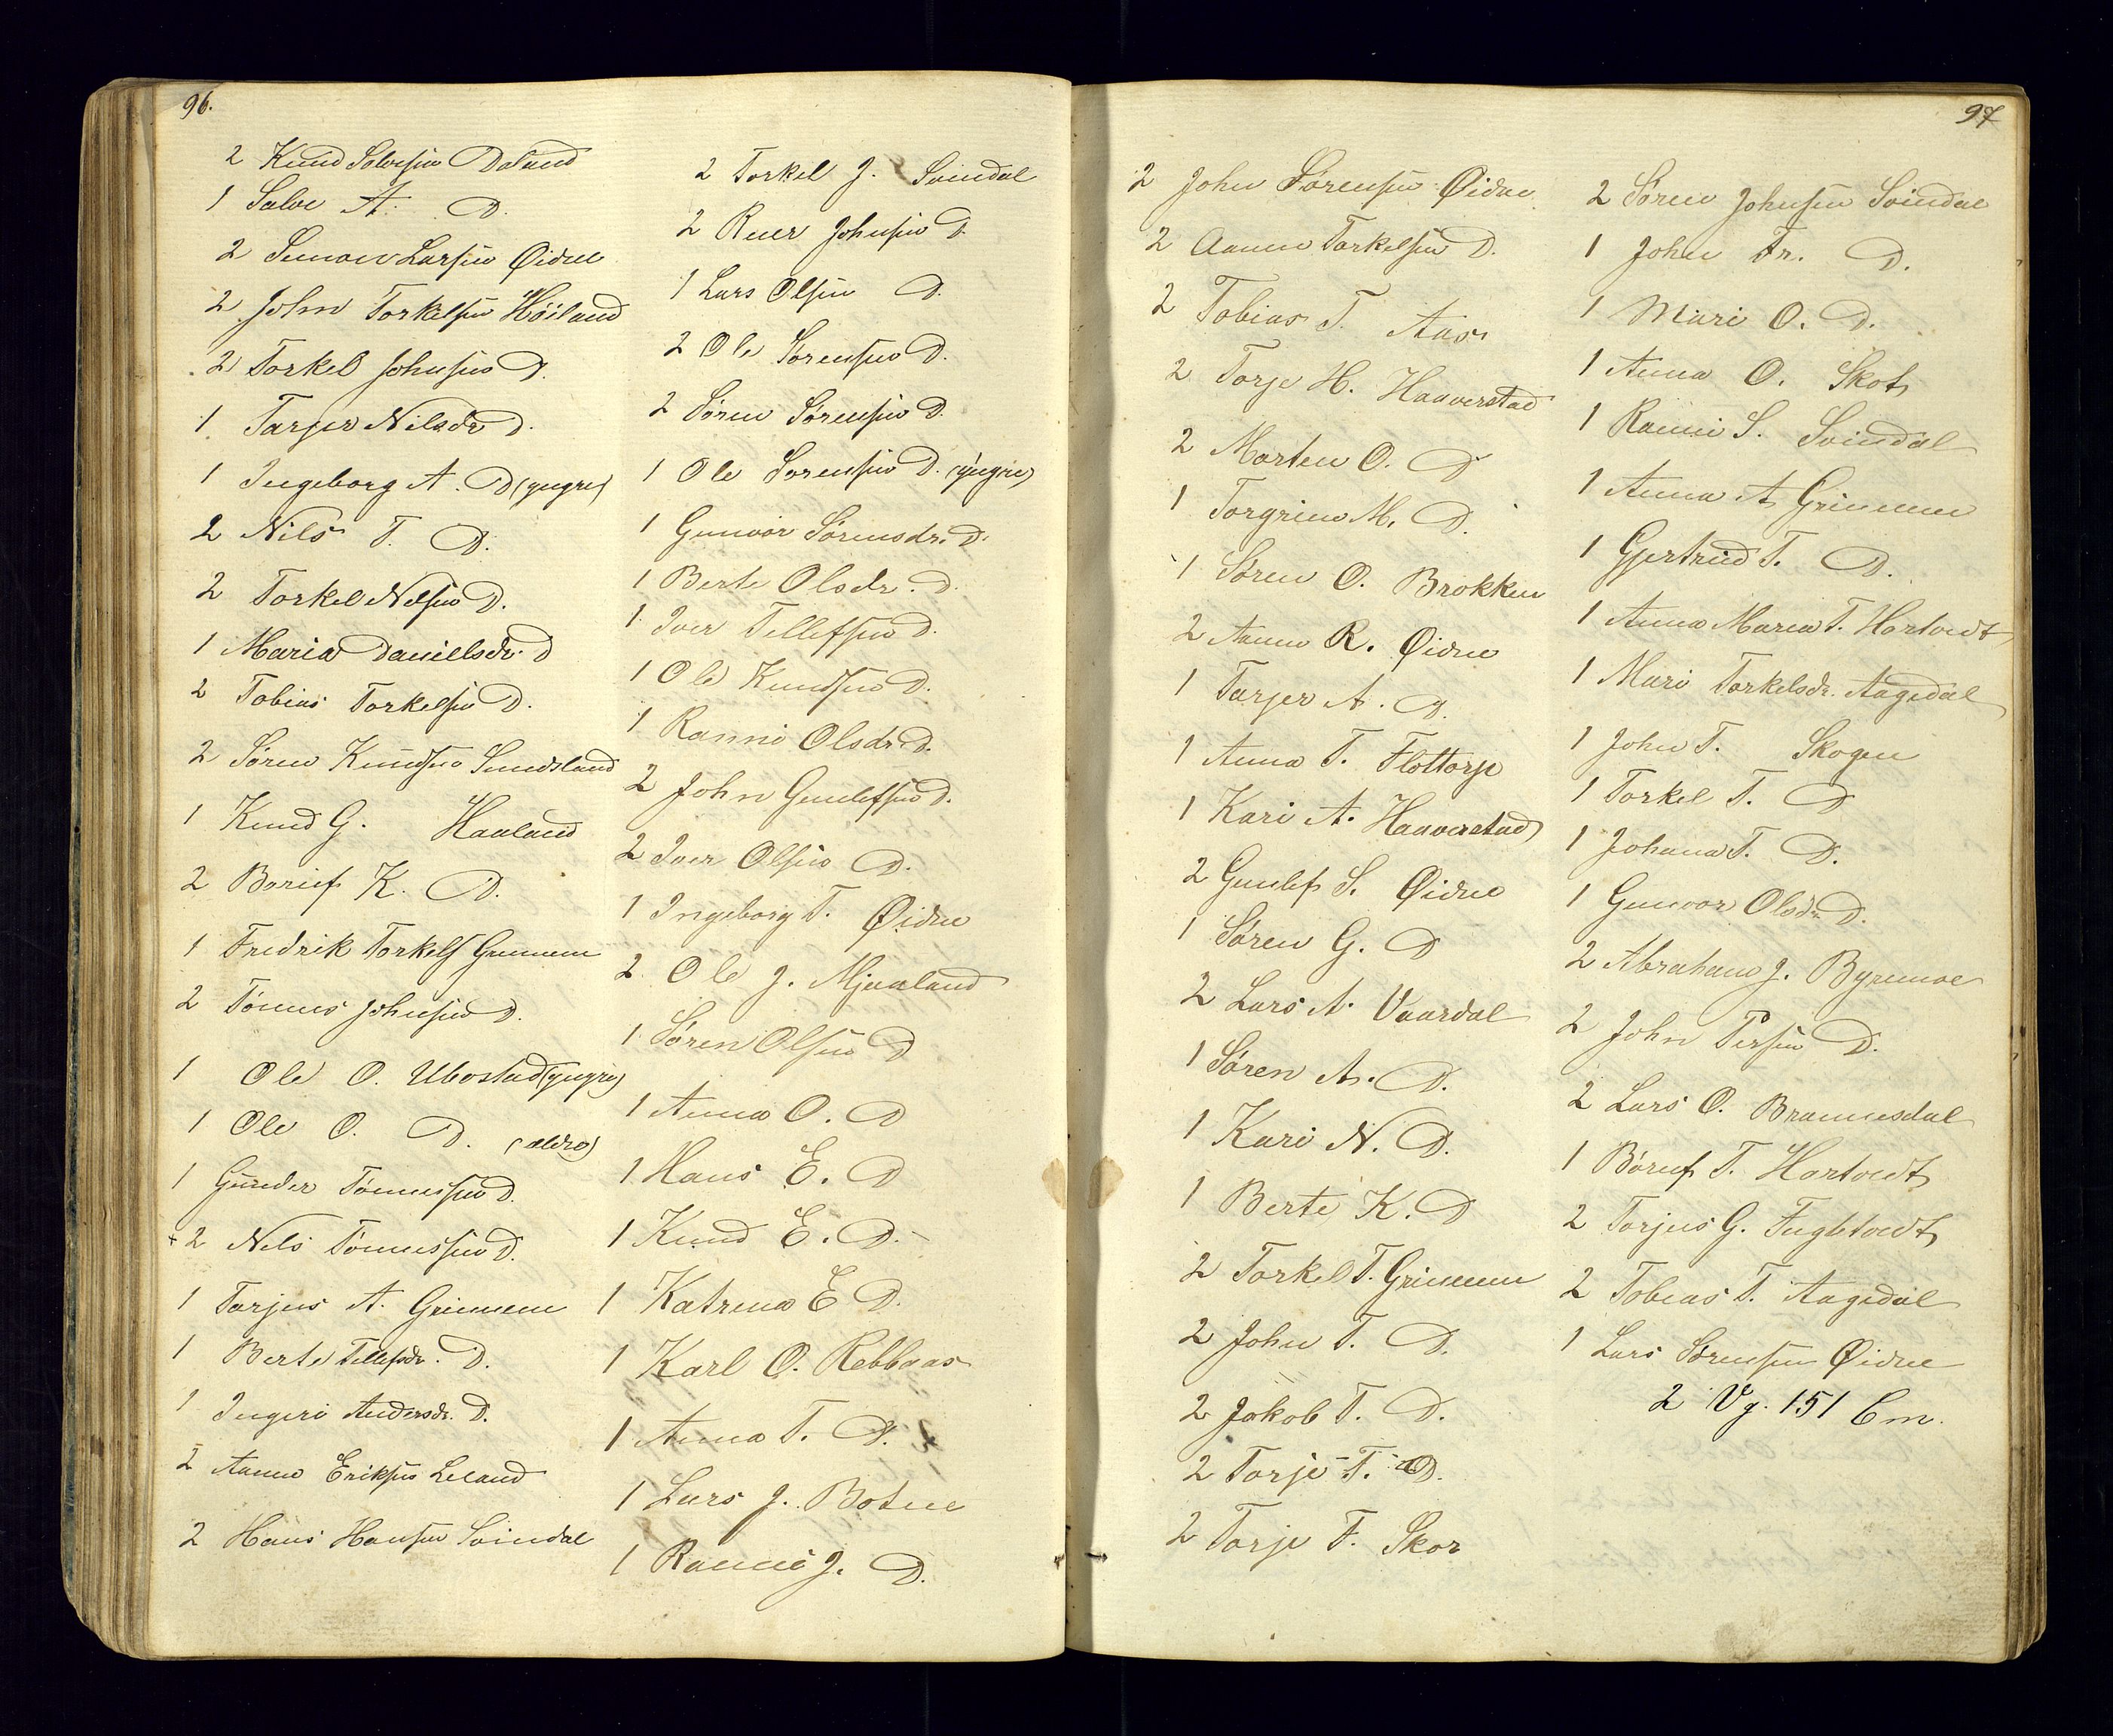 96.
2 Knud Salvesen Daland
1 Salve A. D.
2 Simon Larsen Øidne
2 John Torkelsen Høiland
2 Torkel Johnsen D.
1 Tarjer Nilsdr D.
1 Ingeborg A. D (yngre)
2 Nils T. D.
2 Torkel Nilsen D.
1 Maria Danielsdr. D
2 Tobias Torkelsen D.
2 Søren Knudsen Sundsland
1 Knud G. Haaland
2 Boruf K. D.
1 Fredrik Torkels Grimnem
2 Tønnes Johnsen D.
1 Ole O. Ubostad (yngre)
1 Ole O. D. (ældre)
1 Gunder Tønnessen D.
2 Nils Tønnessen D.
1 Tarjus A. Grimnem
1 Berte Tellefsdr. D.
1 Ingeri Andersdr. D.
2 Aanen Eriksen Leland
2 Hans Hansen Svindal
2 Torkel J. Svindal
2 Reier Johnsen D.
1 Lars Olsen D.
2 Ole Sørensen D.
2 Søren Sørensen D.
1 Ole Sørensen D. (yngre)
1 Gunvor Sørensdr. D.
1 Berte Olsdr. D.
1 Iver Tellefsen D.
1 Ole Knudsen D.
1 Ranni Olsdr. D.
2 John Gunlefsen D.
2 Iver Olsen D.
1 Ingeborg T. Øidne
2 Ole J. Mjaaland
1 Søren Olsen D
1 Anna O. D
1 Hans E. D
1 Knud E. D.
1 Katrina E D.
1 Karl O. Rebbaas
1 Anna T. D.
1 Lars J. Botne
1 Ranni J. D.
97
2 John Sørensen Øidne
2 Aanen Torkelsen D.
2 Tobias T. Aas
2 Torje H. Haaverstad
2 Morten O. D
1 Torgrim M. D.
1 Søren O. Brokken
2 Aanen R. Øidne
1 Tarjer A. D.
1 Anna T. Flottorp
1 Kari A. Haaverstad
2 Gunlef S. Øidne
1 Søren G. D
2 Lars A. Vaardal
1 Søren A. D.
1 Kari N. D.
1 Berte K. D
2 Torkel T. Grimnem
2 John T. D.
2 Jakob T. D.
2 Torje T. D.
2 Torje F. Skor
2 Søren Johnsen Svindal
1 John Fr. D.
1 Mari O. D.
1 Anna O. Skot
1 Ranni S. Svindal
1 Anna A Grimnem
1 Gjertrud T. D.
1 Anna Maria T. Hortvedt
1 Mari Torkelsdr. Aagedal
1 John T. Skogen
1 Torkel T. D
1 Johana T. D.
1 Gunvor Olsdr. D.
2 Abraham J. Byremoe
2 John Persen D.
2 Lars O. Brannesdal
1 Børuf T. Hortvedt
2 Torjus G. Fugletvedt
2 Tobias T. Aagedal
1 Lars Sørensen Øidne
2 Vg. 151 Cm.